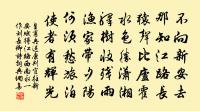 不向新安去
那知江路長
猿聲比廬霍
水色勝瀟湘
驛樹收殘雨
漁家帶夕陽
何須愁旅泊
使者有輝光
皇甫冉送康判官往新
安賦得江路西南永一
作劉長卿詩